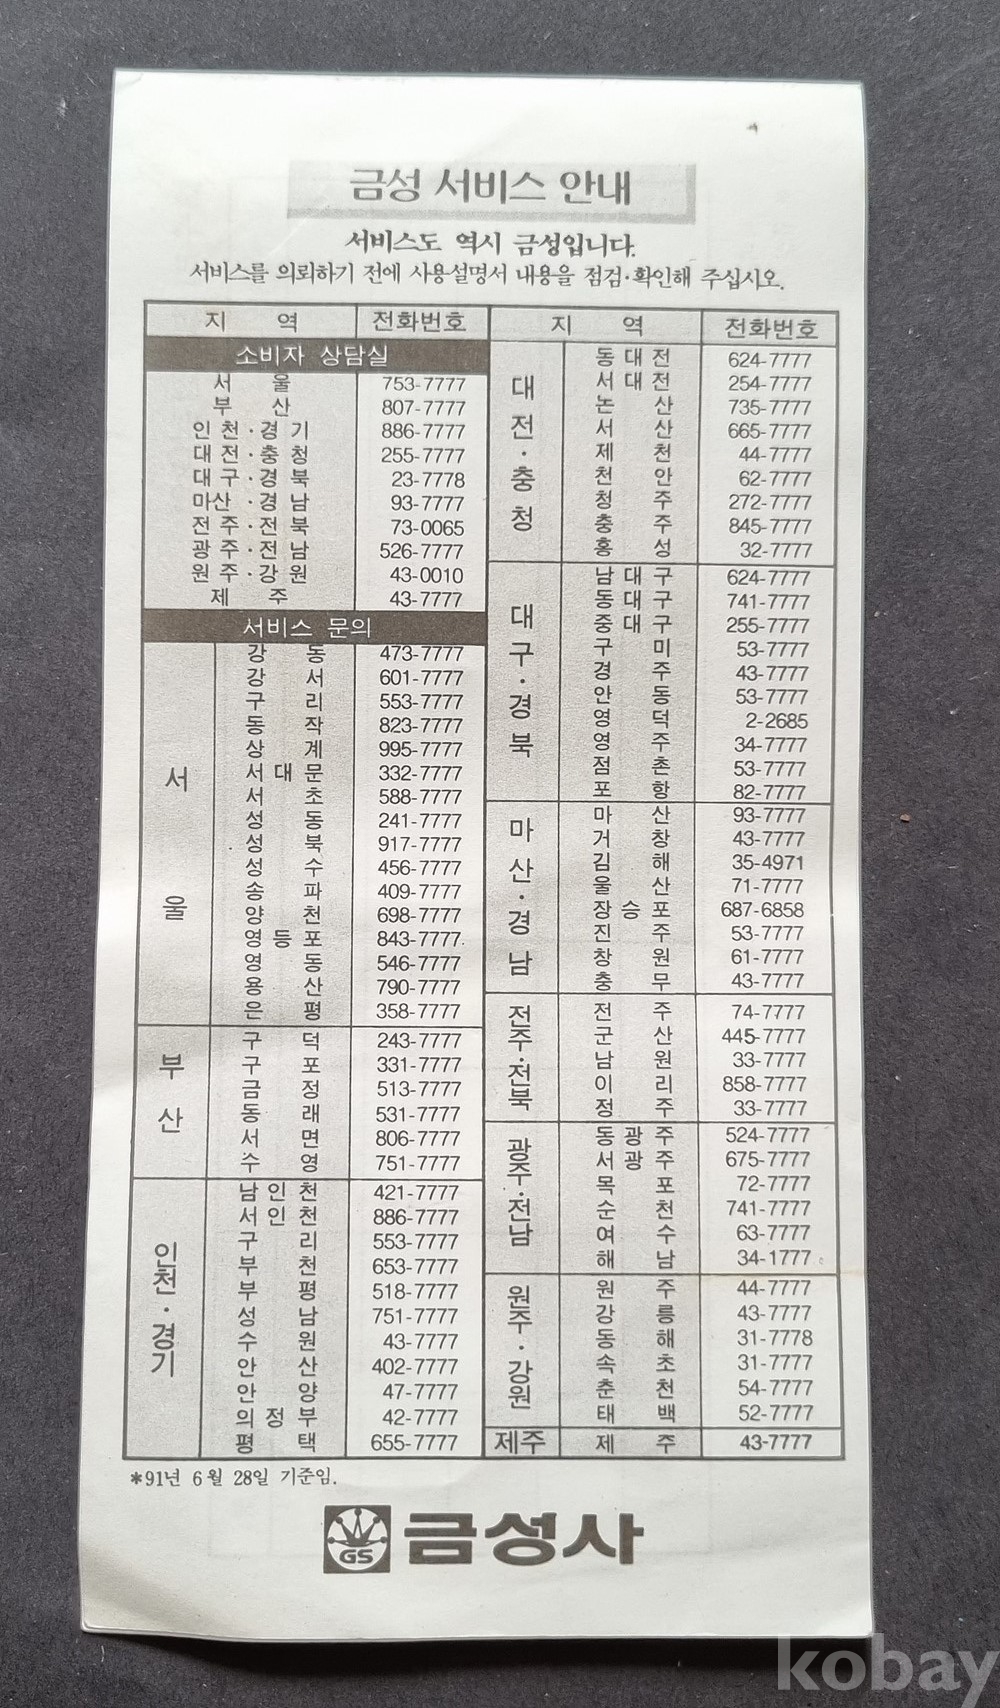 금성 서비스 안내
서비스도 역시 금성입니다.
서비스를 의뢰하기 전에 사용설명서 내용을 점검·확인해 주십시오.
지 역 전화번호
소비자 상담실
서 울 753-7777
부 산 807-7777
인천·경기 886-7777
대전·충청 255-7777
대구·경북 23-7778
마산·경남 93-7777
전주·전북 73-0065
광주·전남 526-7777
원주·강원 43-0010
제 주 43-7777
서비스 문의
서울
강 동 473-7777
강 서 601-7777
구 리 553-7777
동 작 823-7777
상 계 995-7777
서 대 문 332-7777
서 초 588-7777
성 동 241-7777
성 북 917-7777
성 수 456-7777
송 파 409-7777
양 천 698-7777
영 등 포 843-7777
영 동 546-7777
용 산 790-7777
은 평 358-7777
부산
구 덕 243-7777
구 포 331-7777
금 정 513-7777
동 래 531-7777
서 면 806-7777
수 영 751-7777
인천·경기
남 인 천 421-7777
서 인 천 886-7777
구 리 553-7777
부 천 653-7777
부 평 518-7777
성 남 751-7777
수 원 43-7777
안 산 402-7777
안 양 47-7777
의 정 부 42-7777
평 택 655-7777
지 역 전화번호
대전·충청
동 대 전 624-7777
서 대 전 254-7777
논 산 735-7777
서 산 665-7777
제 천 44-7777
천 안 62-7777
청 주 272-7777
충 주 845-7777
홍 성 32-7777
대구·경북
남 대 구 624-7777
동 대 구 741-7777
중 대 구 255-7777
구 미 53-7777
경 주 43-7777
안 동 53-7777
영 덕 2-2685
영 주 34-7777
점 촌 53-7777
포 항 82-7777
마산·경남
마 산 93-7777
거 창 43-7777
김 해 35-4971
울 산 71-7777
장 승 포 687-6858
진 주 53-7777
창 원 61-7777
충 무 43-7777
전주·전북
전 주 74-7777
군 산 445-7777
남 원 33-7777
이 리 858-7777
정 주 33-7777
광주·전남
동 광 주 524-7777
서 광 주 675-7777
목 포 72-7777
순 천 741-7777
여 수 63-7777
해 남 34-1777
원주·강원
원 주 44-7777
강 릉 43-7777
동 해 31-7778
속 초 31-7777
춘 천 54-7777
태 백 52-7777
제주
제 주 43-7777
*91년 6월 28일 기준임.
GS 금성사
kobay